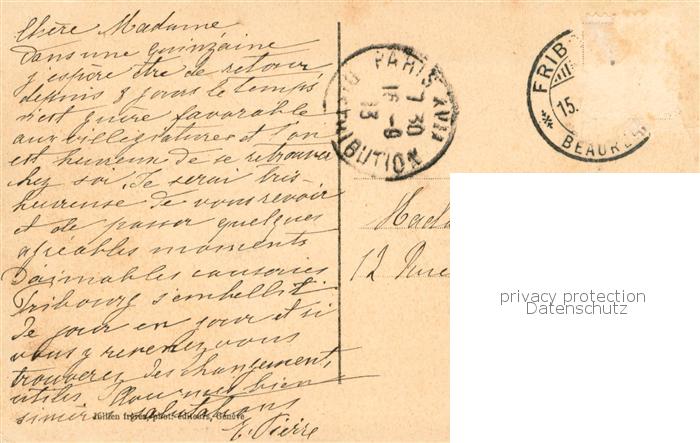 Chère Madame
Dans une quinzaine
j'espère être de retour
depuis 8 jours le temps
n'est guère favorable
aux villégiatures et l'on
est heureux de se retrouver
chez soi. Je serai très
heureuse de vous revoir
et de passer quelques
agréables moments
D'aimables causeries
Fribourg s'embellit
de jour en jour et si
vous y revenez vous
trouverez des changements
utiles. Pour
salutations
E. Pierre
Jullien frères, phot. éditeurs, Genève
PARIS XVII
7 30
16-9
13
DISTRIBUTION
FRIB
15.
BEAUREG
Mada
12 Rue
privacy protection
Datenschutz